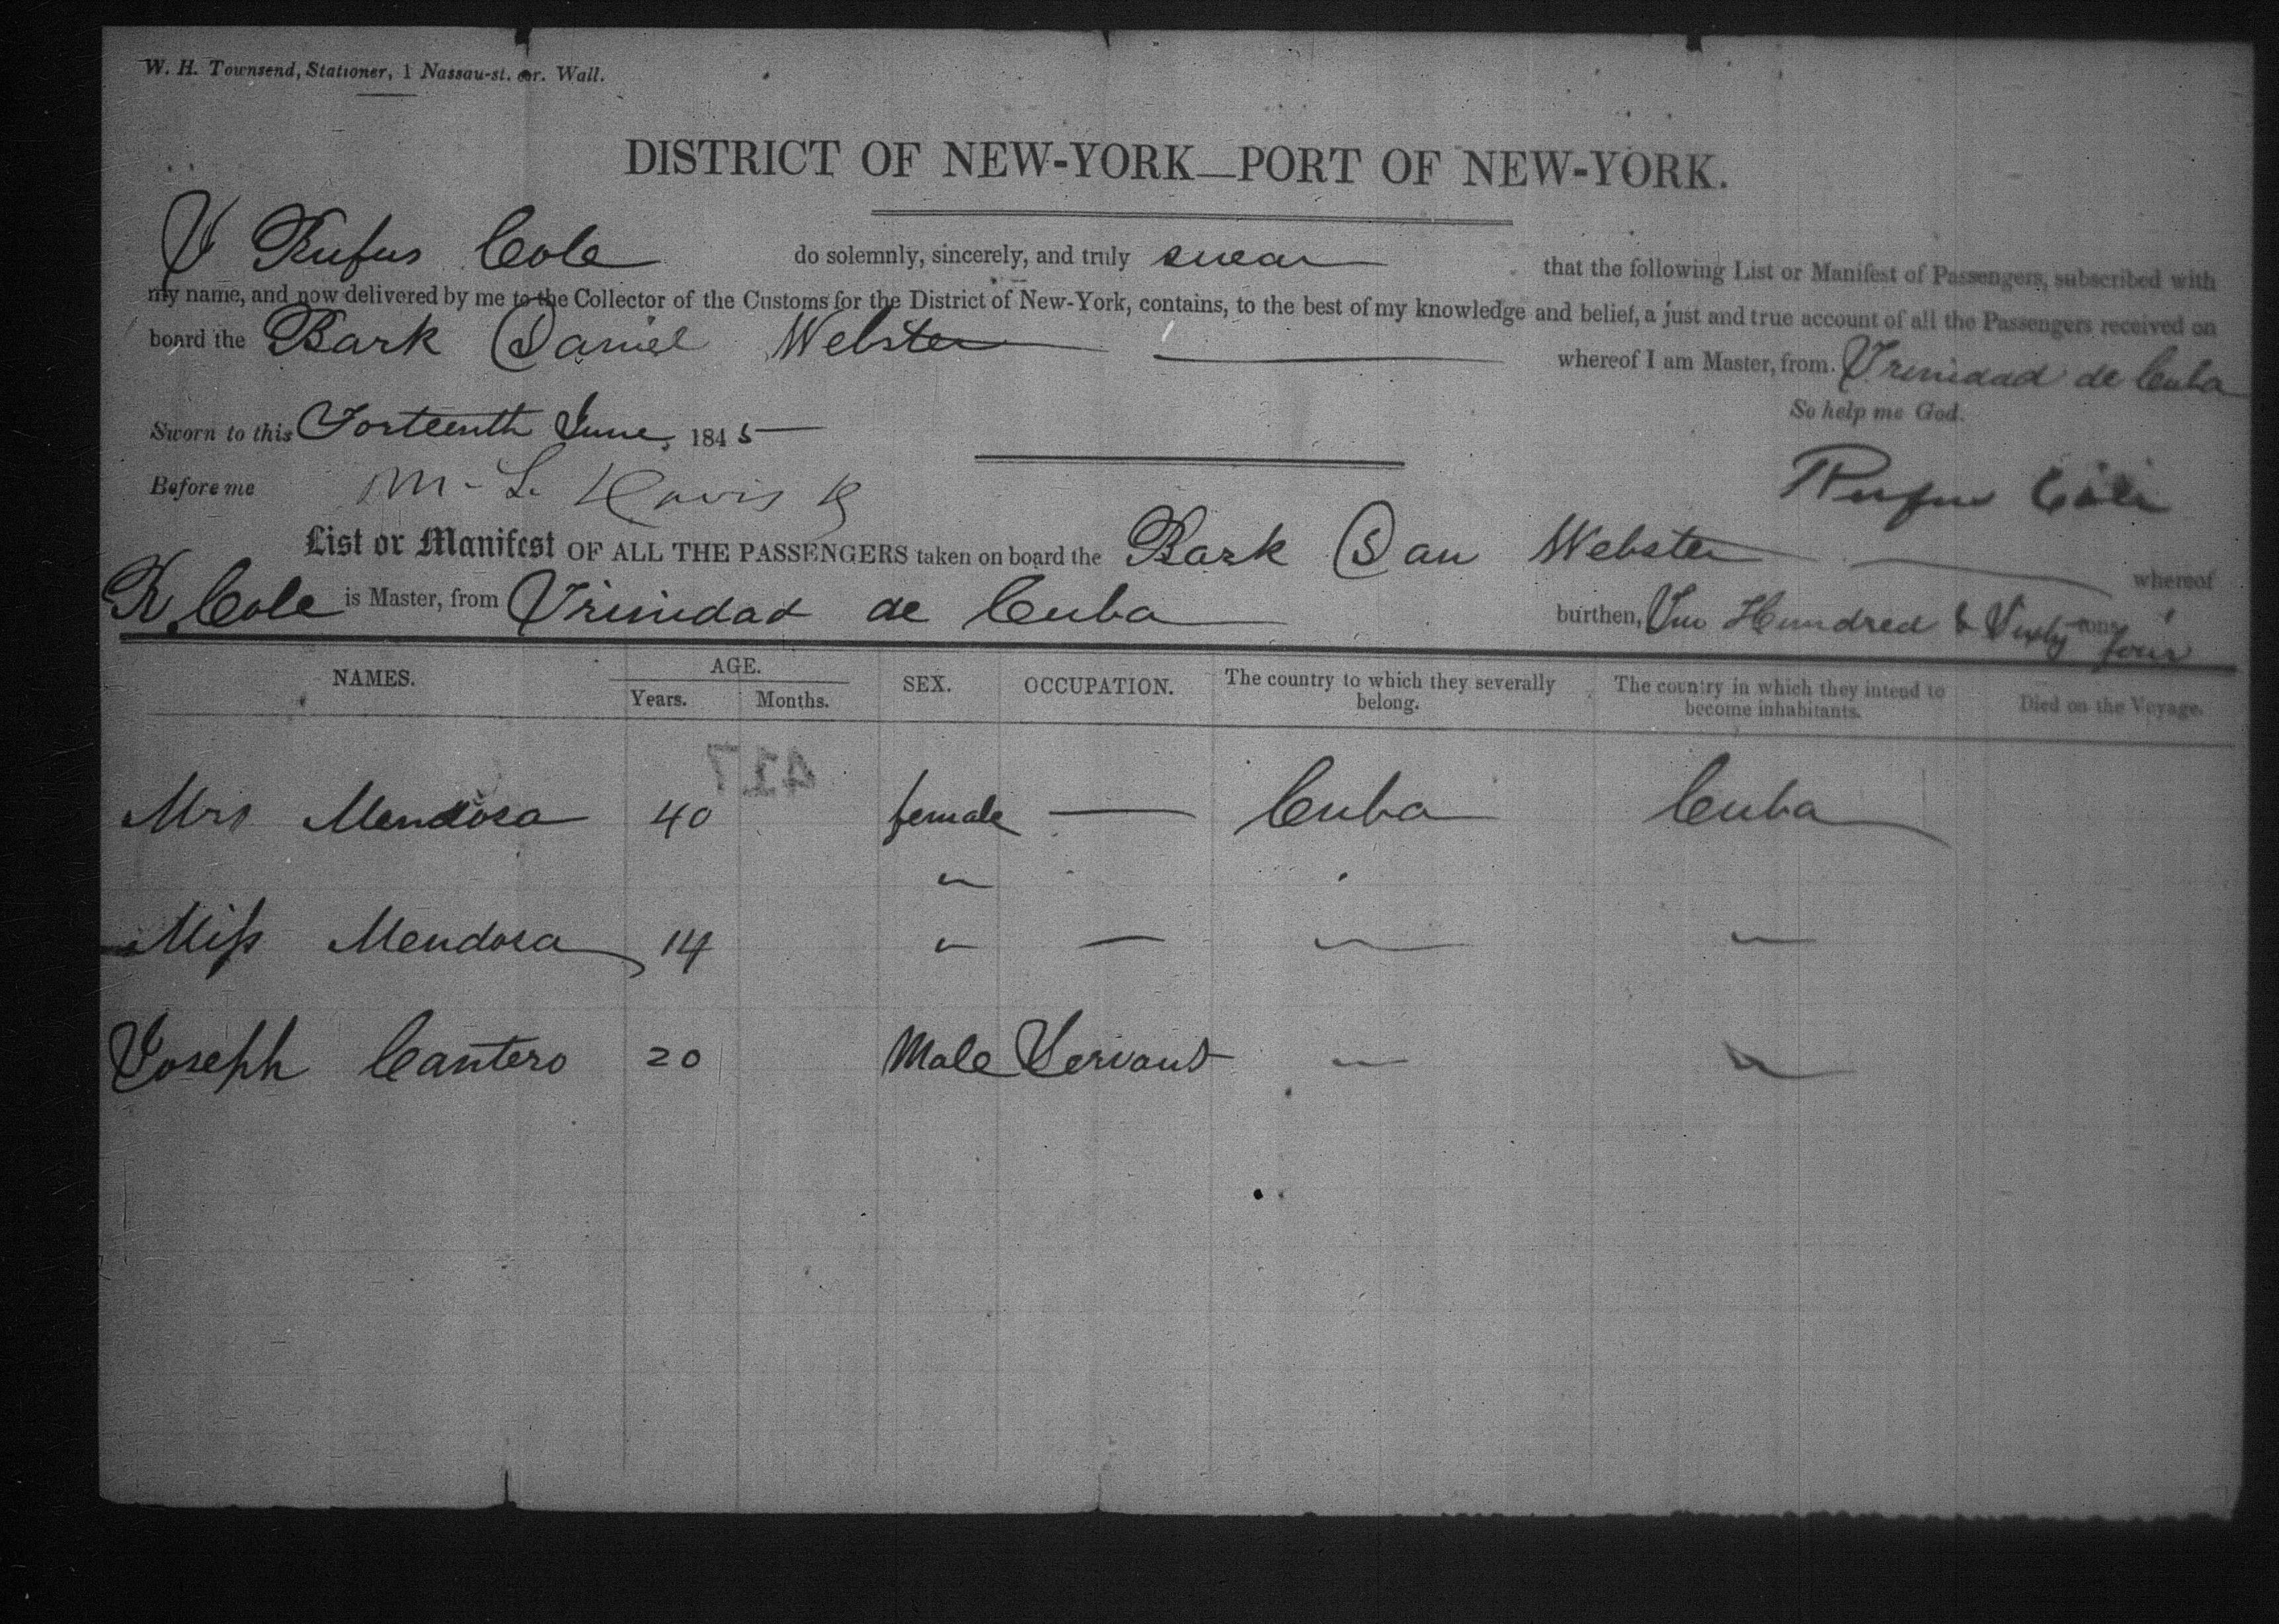 W. H. Townsend, Stationer, 1 Nassau-st. cor. Wall.
DISTRICT OF NEW-YORK—PORT OF NEW-YORK.
I Rufus Cole do solemnly, sincerely, and truly swear that the following List or Manifest of Passengers, subscribed with
my name, and now delivered by me to the Collector of the Customs for the District of New-York, contains, to the best of my knowledge and belief, a just and true account of all the Passengers received on
board the Bark Daniel Webster whereof I am Master, from Trinidad de Cuba
So help me God.
Sworn to this Forteenth June, 1845
Before me M. L. Davis Rufus Cole
List or Manifest OF ALL THE PASSENGERS taken on board the Bark Dan Webster whereof
R. Cole is Master, from Trinidad de Cuba burthen, Two Hundred & Sixty four tons
NAMES. AGE. SEX. OCCUPATION. The country to which they severally belong. The country in which they intend to become inhabitants. Died on the Voyage.
Years. Months.
417
Mrs Mendosa 40 female — Cuba Cuba
"
Miss Mendosa 14 " — " "
Joseph Cantero 20 Male Servant " "